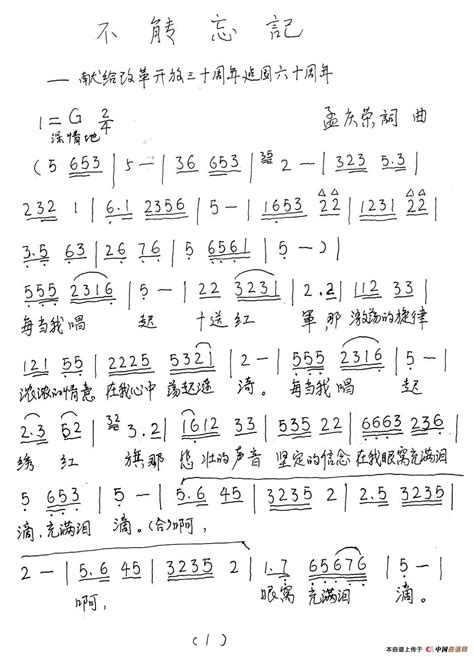 不能忘記
——献给改革开放三十周年建国六十周年
1=G 2/4 孟庆荣詞曲
深情地
(5 653 | 5 - | 36 653 | 2 - | 323 5.3 |
232 1 | 6.1 2356 | 5 - | 1653 22 | 1231 22 |
3.5 63 | 26 76 | 5 6561 | 5 - ) |
555 2316 | 5 - | 22 3231 | 2.2 | 112 33 |
每当我唱 起 十送红 軍那激荡的旋律
121 55 | 2225 5321 | 2 - | 555 2316 | 5 - |
浓浓的情意 在我心中 荡起涟 漪。每当我唱 起
2.3 52 | 3.2 | 1612 33 | 535 22 | 6663 236 |
绣红 旗那 悲壮的声音 坚定的信念 在我眼窝充满泪
5 653 | 5 - | 5.6 45 | 3235 2 | 2.5 3235 |
滴,充满泪 滴。(合)啊,
2 - | 5.6 45 | 3235 2 | 1.7 65676 | 5 - |
啊, 眼窝 充满泪 滴。
(1)
本曲谱上传于 中国曲谱网